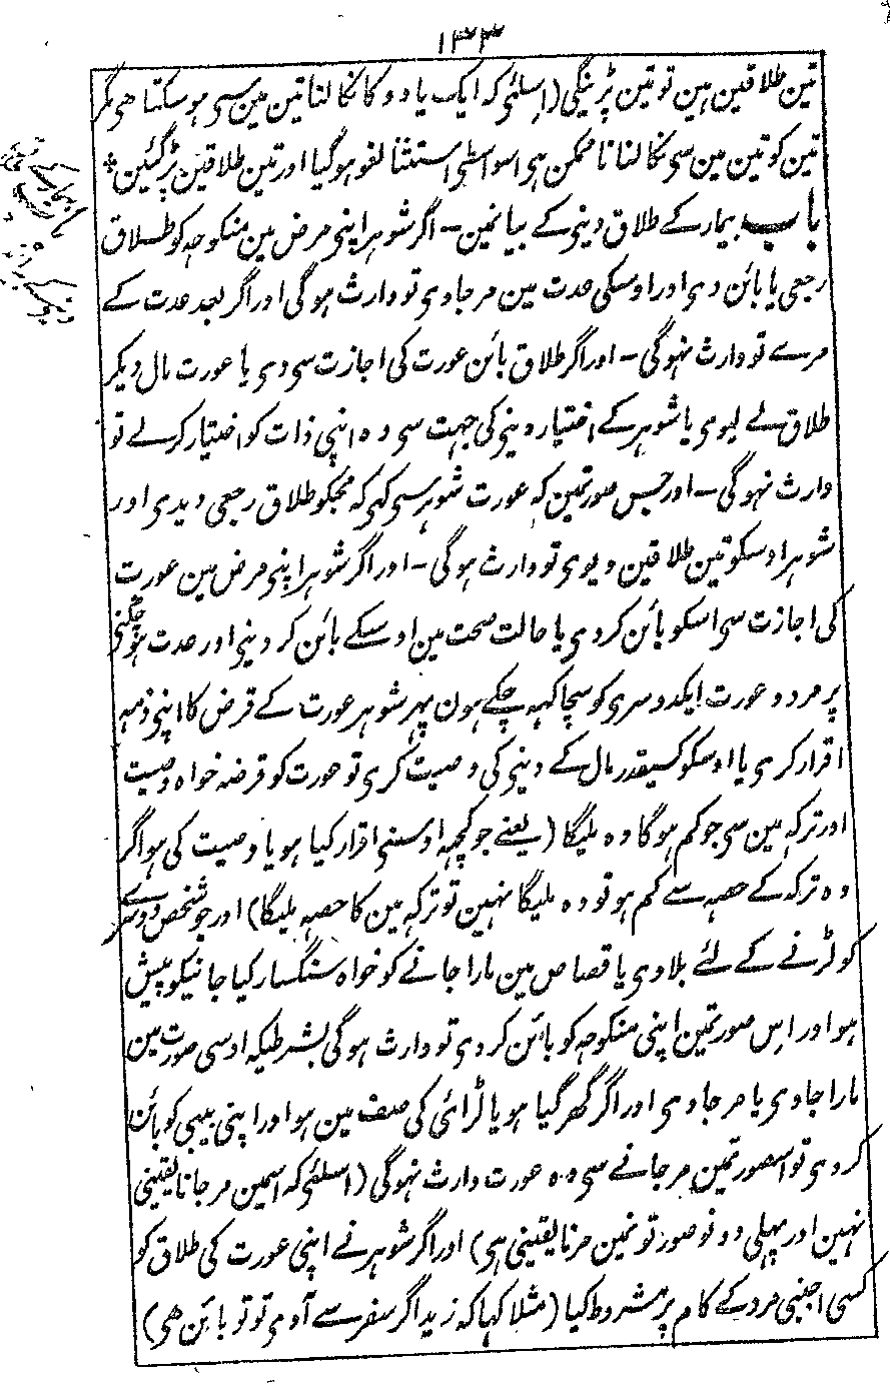 ۱۳۳
تین طلاقین ہین تو تین پڑینگی (اسلئی کہ ایک یا دو کا نکالنا تین مین سی ہو سکتا ھی مگر
تین کو تین مین سی نکالنا ناممکن ہی اسواسطی استثنا لغو ہوگیا اور تین طلاقین پڑگئین *
باب بیمار کے طلاق دینی کے بیانمین - اگر شوہر اپنی مرض مین منکوحہ کو طلاق
رجعی یا بائن دی اور اوسکی عدت مین مر جاوی تو وارث ہوگی اور اگر بعد عدت کے
مرے تو وارث نہوگی - اور اگر طلاق بائن عورت کی اجازت سی دی یا عورت مال دیکر
طلاق لے لیوی یا شوہر کے اختیار دینی کی جہت سی وہ اپنی ذات کو اختیار کرلے تو
وارث نہوگی - اور جس صورتمین کہ عورت شوہر سی کہی کہ مجکو طلاق رجعی دیدی اور
شوہر اوسکو تین طلاقین دیوی تو وارث ہوگی - اور اگر شوہر اپنی مرض مین عورت
کی اجازت سی اسکو بائن کردی یا حالت صحت مین اوسکے بائن کر دینی اور عدت ہو چکنی
پر مرد و عورت ایکدوسری کو سچا کہہ چکے ہون پہر شوہر عورت کے قرض کا اپنی ذمہ
اقرار کری یا اوسکو کسیقدر مال کے دینی کی وصیت کری تو عورت کو قرضہ خواہ وصیت
اور ترکہ مین سی جو کم ہوگا وہ ملیگا (یعنے جو کچہہ اوسنی اقرار کیا ہو یا وصیت کی ہو اگر
وہ ترکہ کے حصہ سے کم ہو تو وہ ملیگا نہین تو ترکہ مین کا حصہ ملیگا) اور جو شخص دوسرے
کو لڑنے کے لئے بلاوی یا قصاص مین مارا جانے کو خواہ سنگسار کیا جانیکو پیش
ہو اور اس صورتمین اپنی منکوحہ کو بائن کر دی تو وارث ہوگی بشرطیکہ اوسی صورت مین
مارا جاوی یا مر جاوی اور اگر گھر گیا ہو یا لڑائی کی صف مین ہو اور اپنی بیبی کو بائن
کر دی تو اسصورتمین مر جانے سی وہ عورت وارث نہوگی (اسلئی کہ اسمین مر جانا یقینی
نہین اور پہلی دونو صورتونمین مرنا یقینی ہی) اور اگر شوہر نے اپنی عورت کی طلاق کو
کسی اجنبی مرد کے کام پر مشروط کیا (مثلا کہا کہ زید اگر سفر سے آوی تو تو بائن ھی)